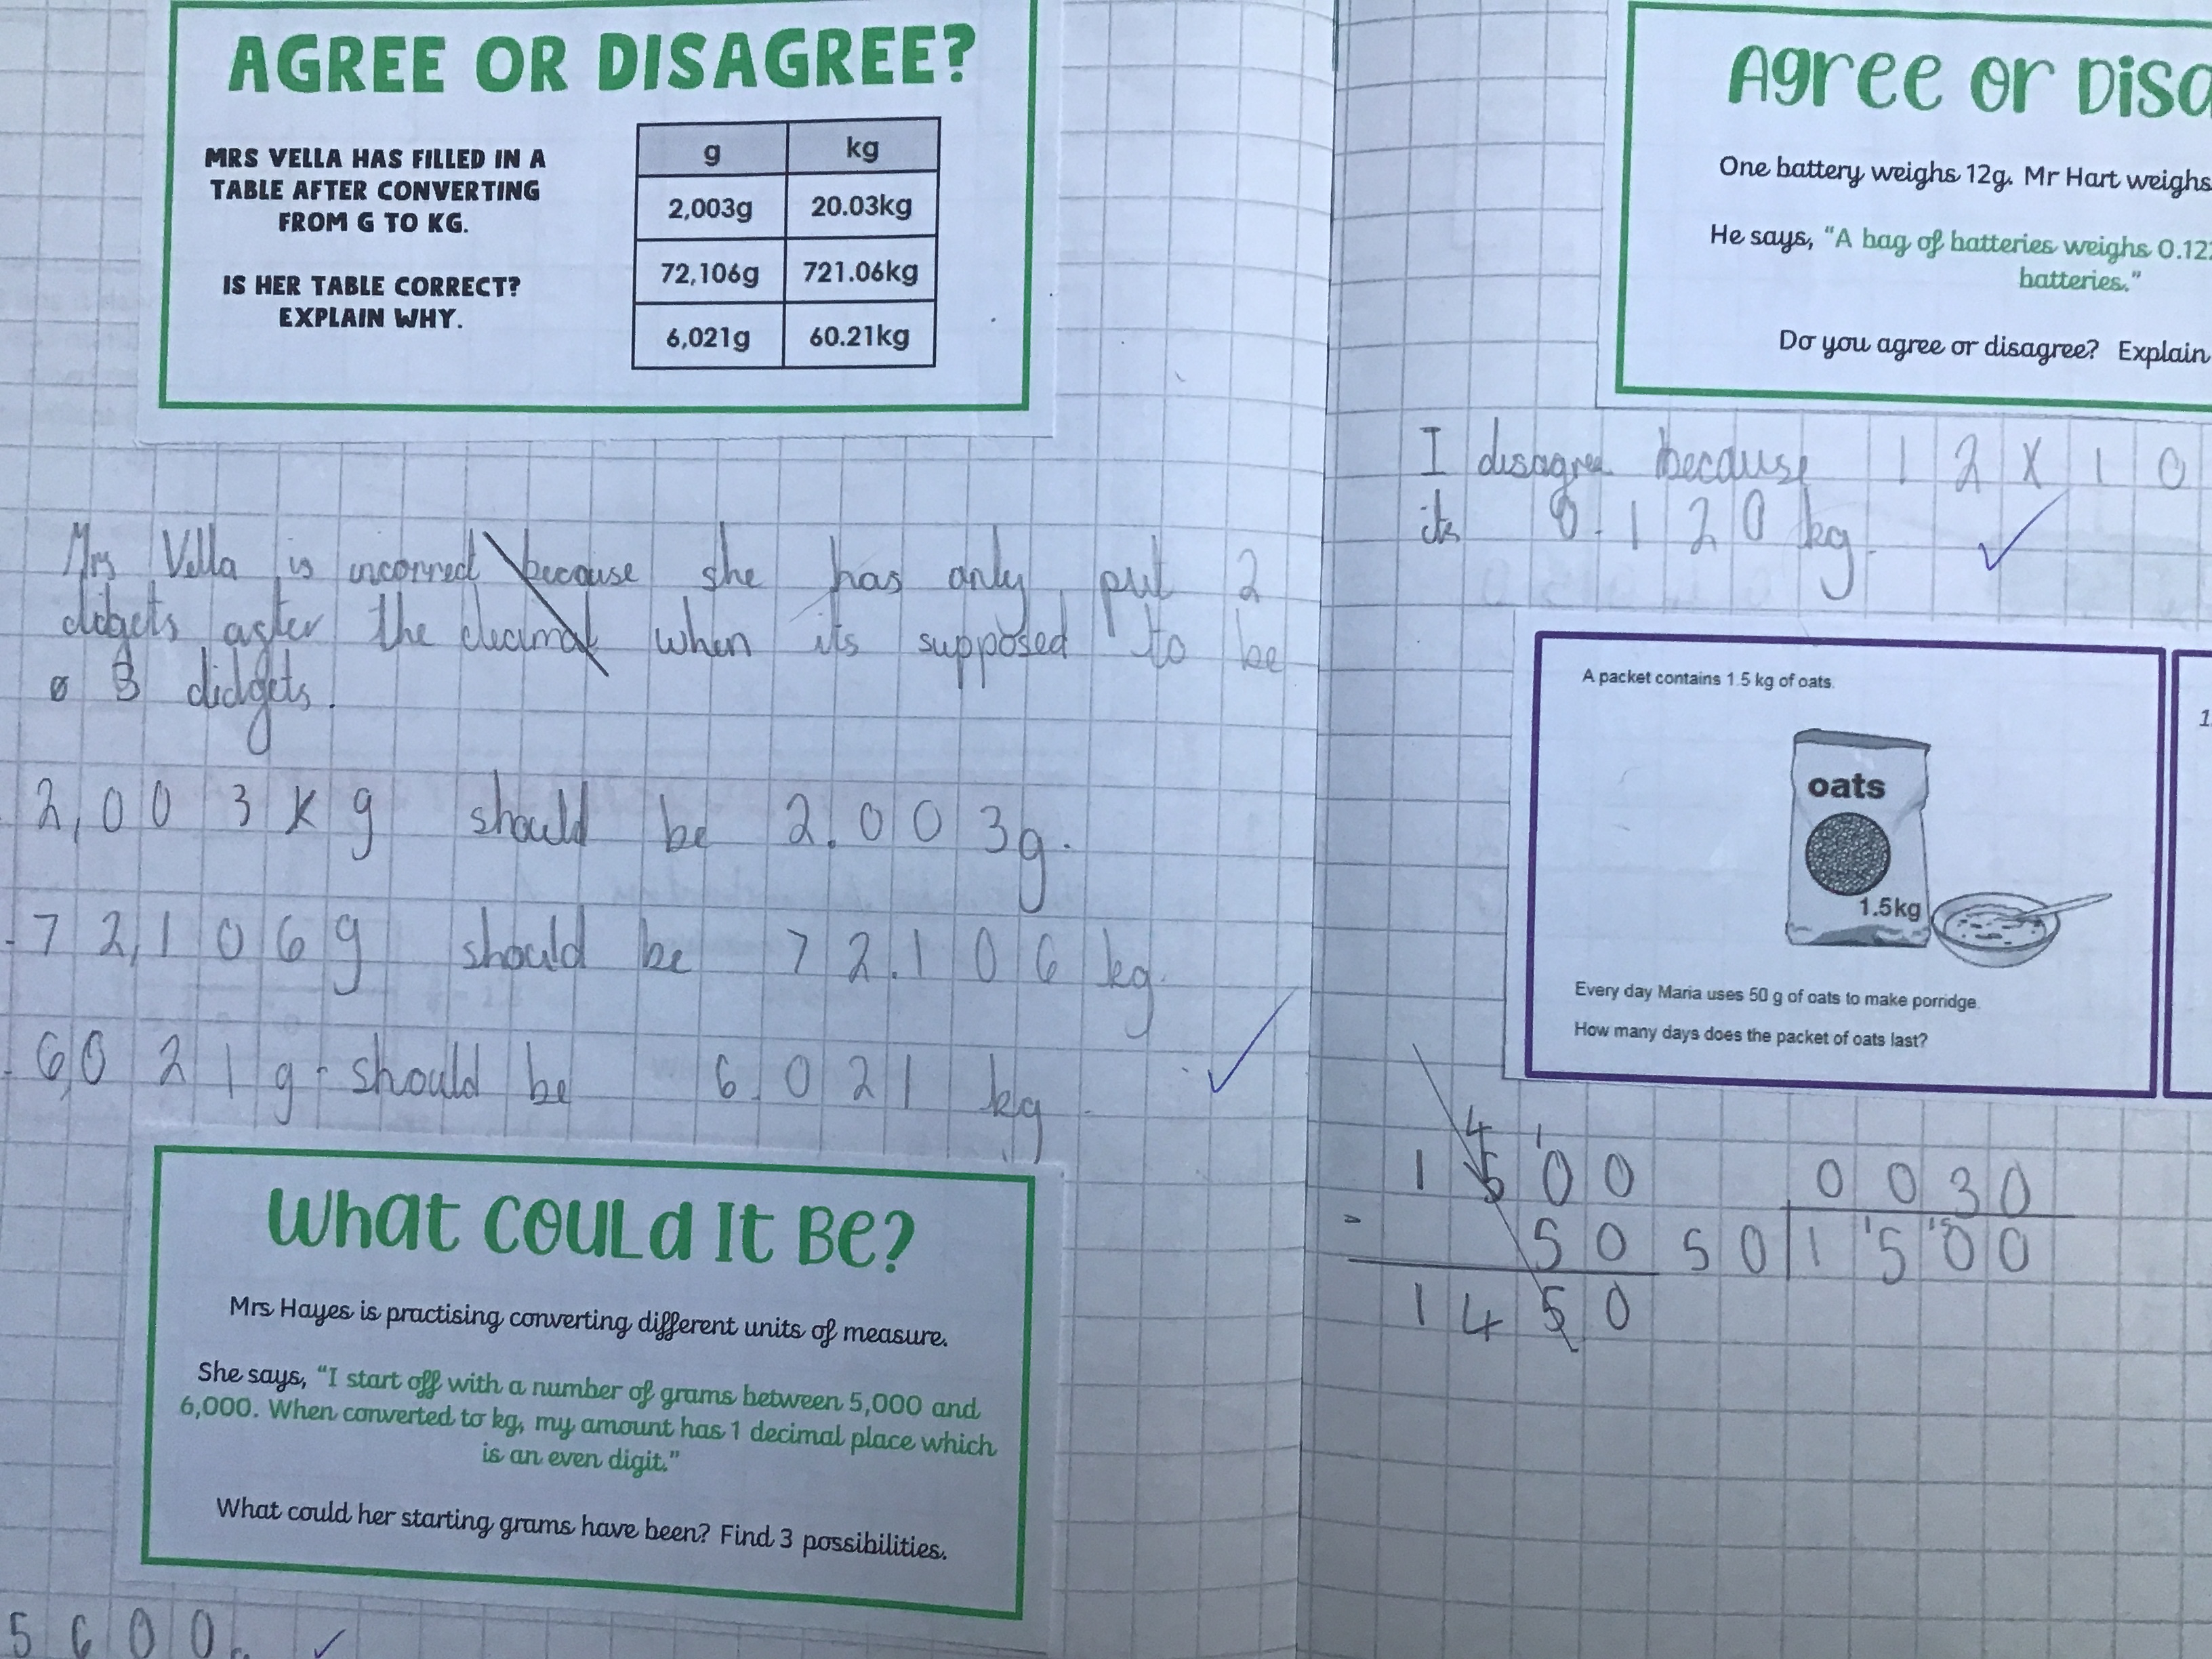 AGREE OR DISAGREE?
MRS VELLA HAS FILLED IN A
TABLE AFTER CONVERTING
FROM G TO KG.
IS HER TABLE CORRECT?
EXPLAIN WHY.
g kg
2,003g 20.03kg
72,106g 721.06kg
6,021g 60.21kg
Mrs Vella is incorrect because she has only put 2
didgets after the decimal when its supposed to be
3 didgets.
2,003kg should be 2.003g.
72,106g should be 72.106 kg.
6,021g should be 6.021 kg
What Could It Be?
Mrs Hayes is practising converting different units of measure.
She says, "I start off with a number of grams between 5,000 and
6,000. When converted to kg, my amount has 1 decimal place which
is an even digit."
What could her starting grams have been? Find 3 possibilities.
5600.
Agree or Disa
One battery weighs 12g. Mr Hart weighs
He says, "A bag of batteries weighs 0.12
batteries."
Do you agree or disagree? Explain
I disagree because 12 x 10
its 0.120 kg.
A packet contains 1.5 kg of oats.
oats
1.5kg
Every day Maria uses 50 g of oats to make porridge.
How many days does the packet of oats last?
4 1
1500
- 50
1450
0030
50 1 15 150 0
1